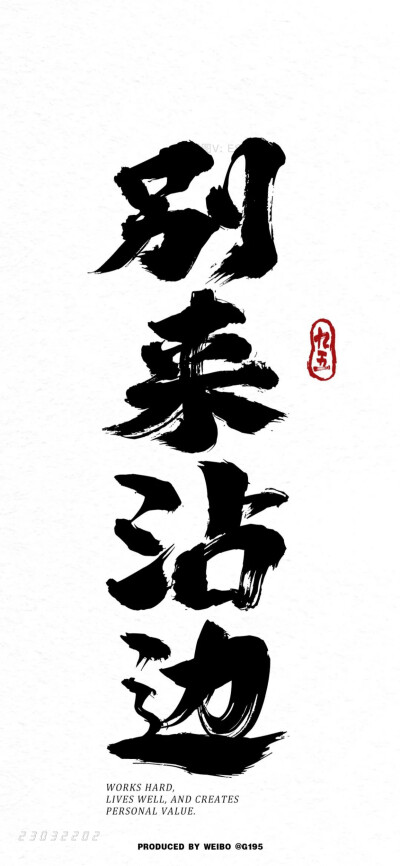 别来沾边
九五
WORKS HARD,
LIVES WELL, AND CREATES
PERSONAL VALUE.
23032202
PRODUCED BY WEIBO @G195